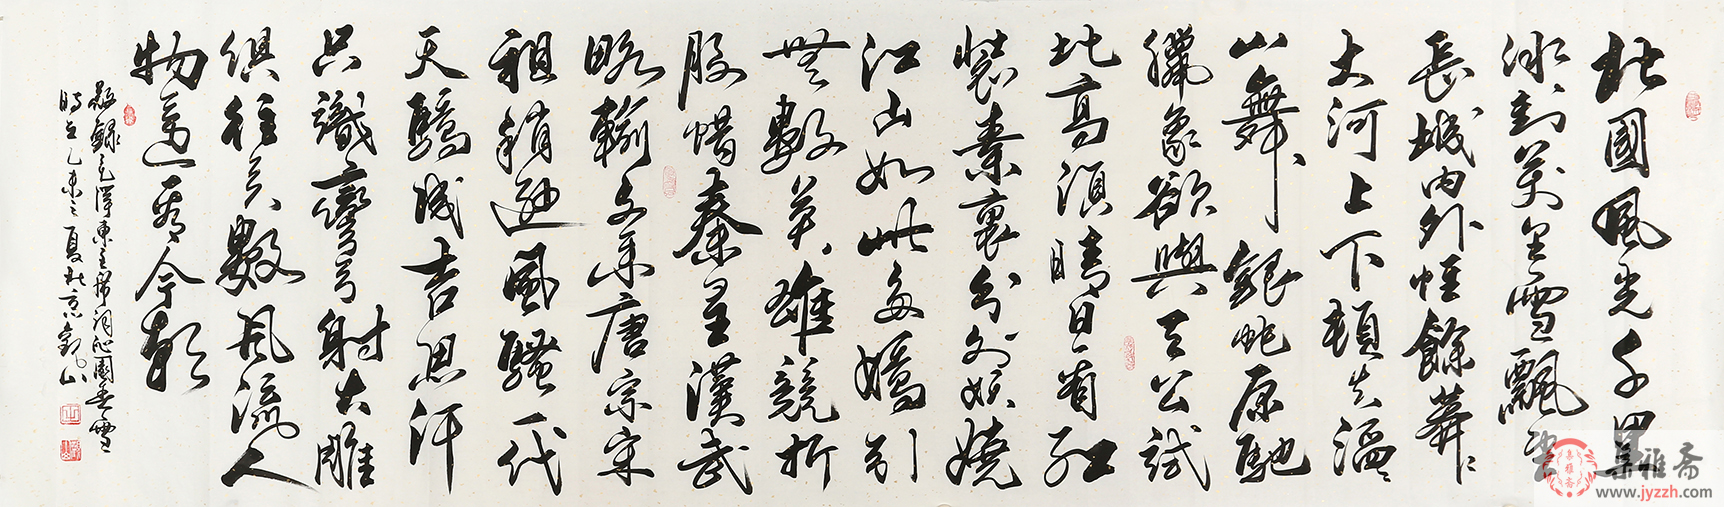 北國風光千里
冰封萬里雪飄望
長城內外惟餘莽〻
大河上下頓失滔〻
山舞銀蛇原馳
臘象欲與天公試
比高須晴日看紅
裝素裹分外妖嬈
江山如此多嬌引
無數英雄競折
腰惜秦皇漢武
略輸文采唐宗宋
祖稍遜風騷一代
天驕成吉思汗
只識彎弓射大雕
俱往矣數風流人
物還看今朝
敬錄毛澤東主席詞沁園春雪
時在乙未之夏北京
集雅斋
www.jyzzh.com